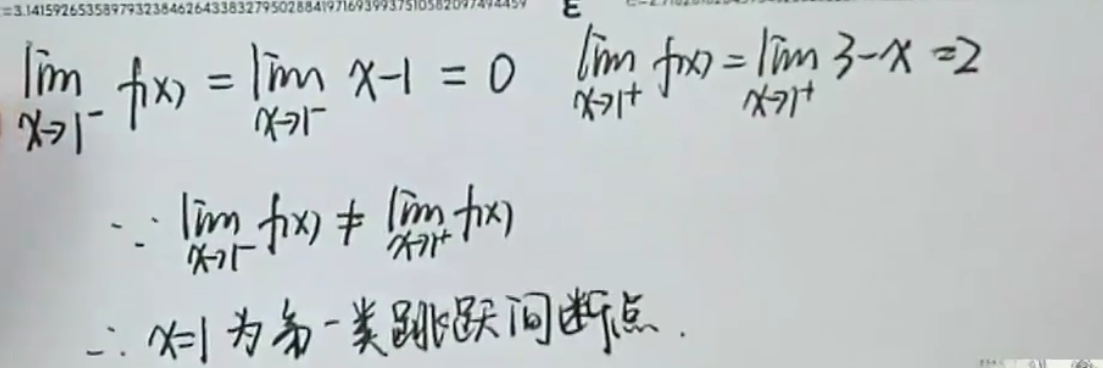 =3.14159265358979323846264338327950288419716939937510582097494459 ε
lim x→1⁻ f(x) = lim x→1⁻ x-1 = 0 lim x→1⁺ f(x) = lim x→1⁺ 3-x = 2
∵ lim x→1⁻ f(x) ≠ lim x→1⁺ f(x)
∴ x=1 为第一类跳跃间断点.